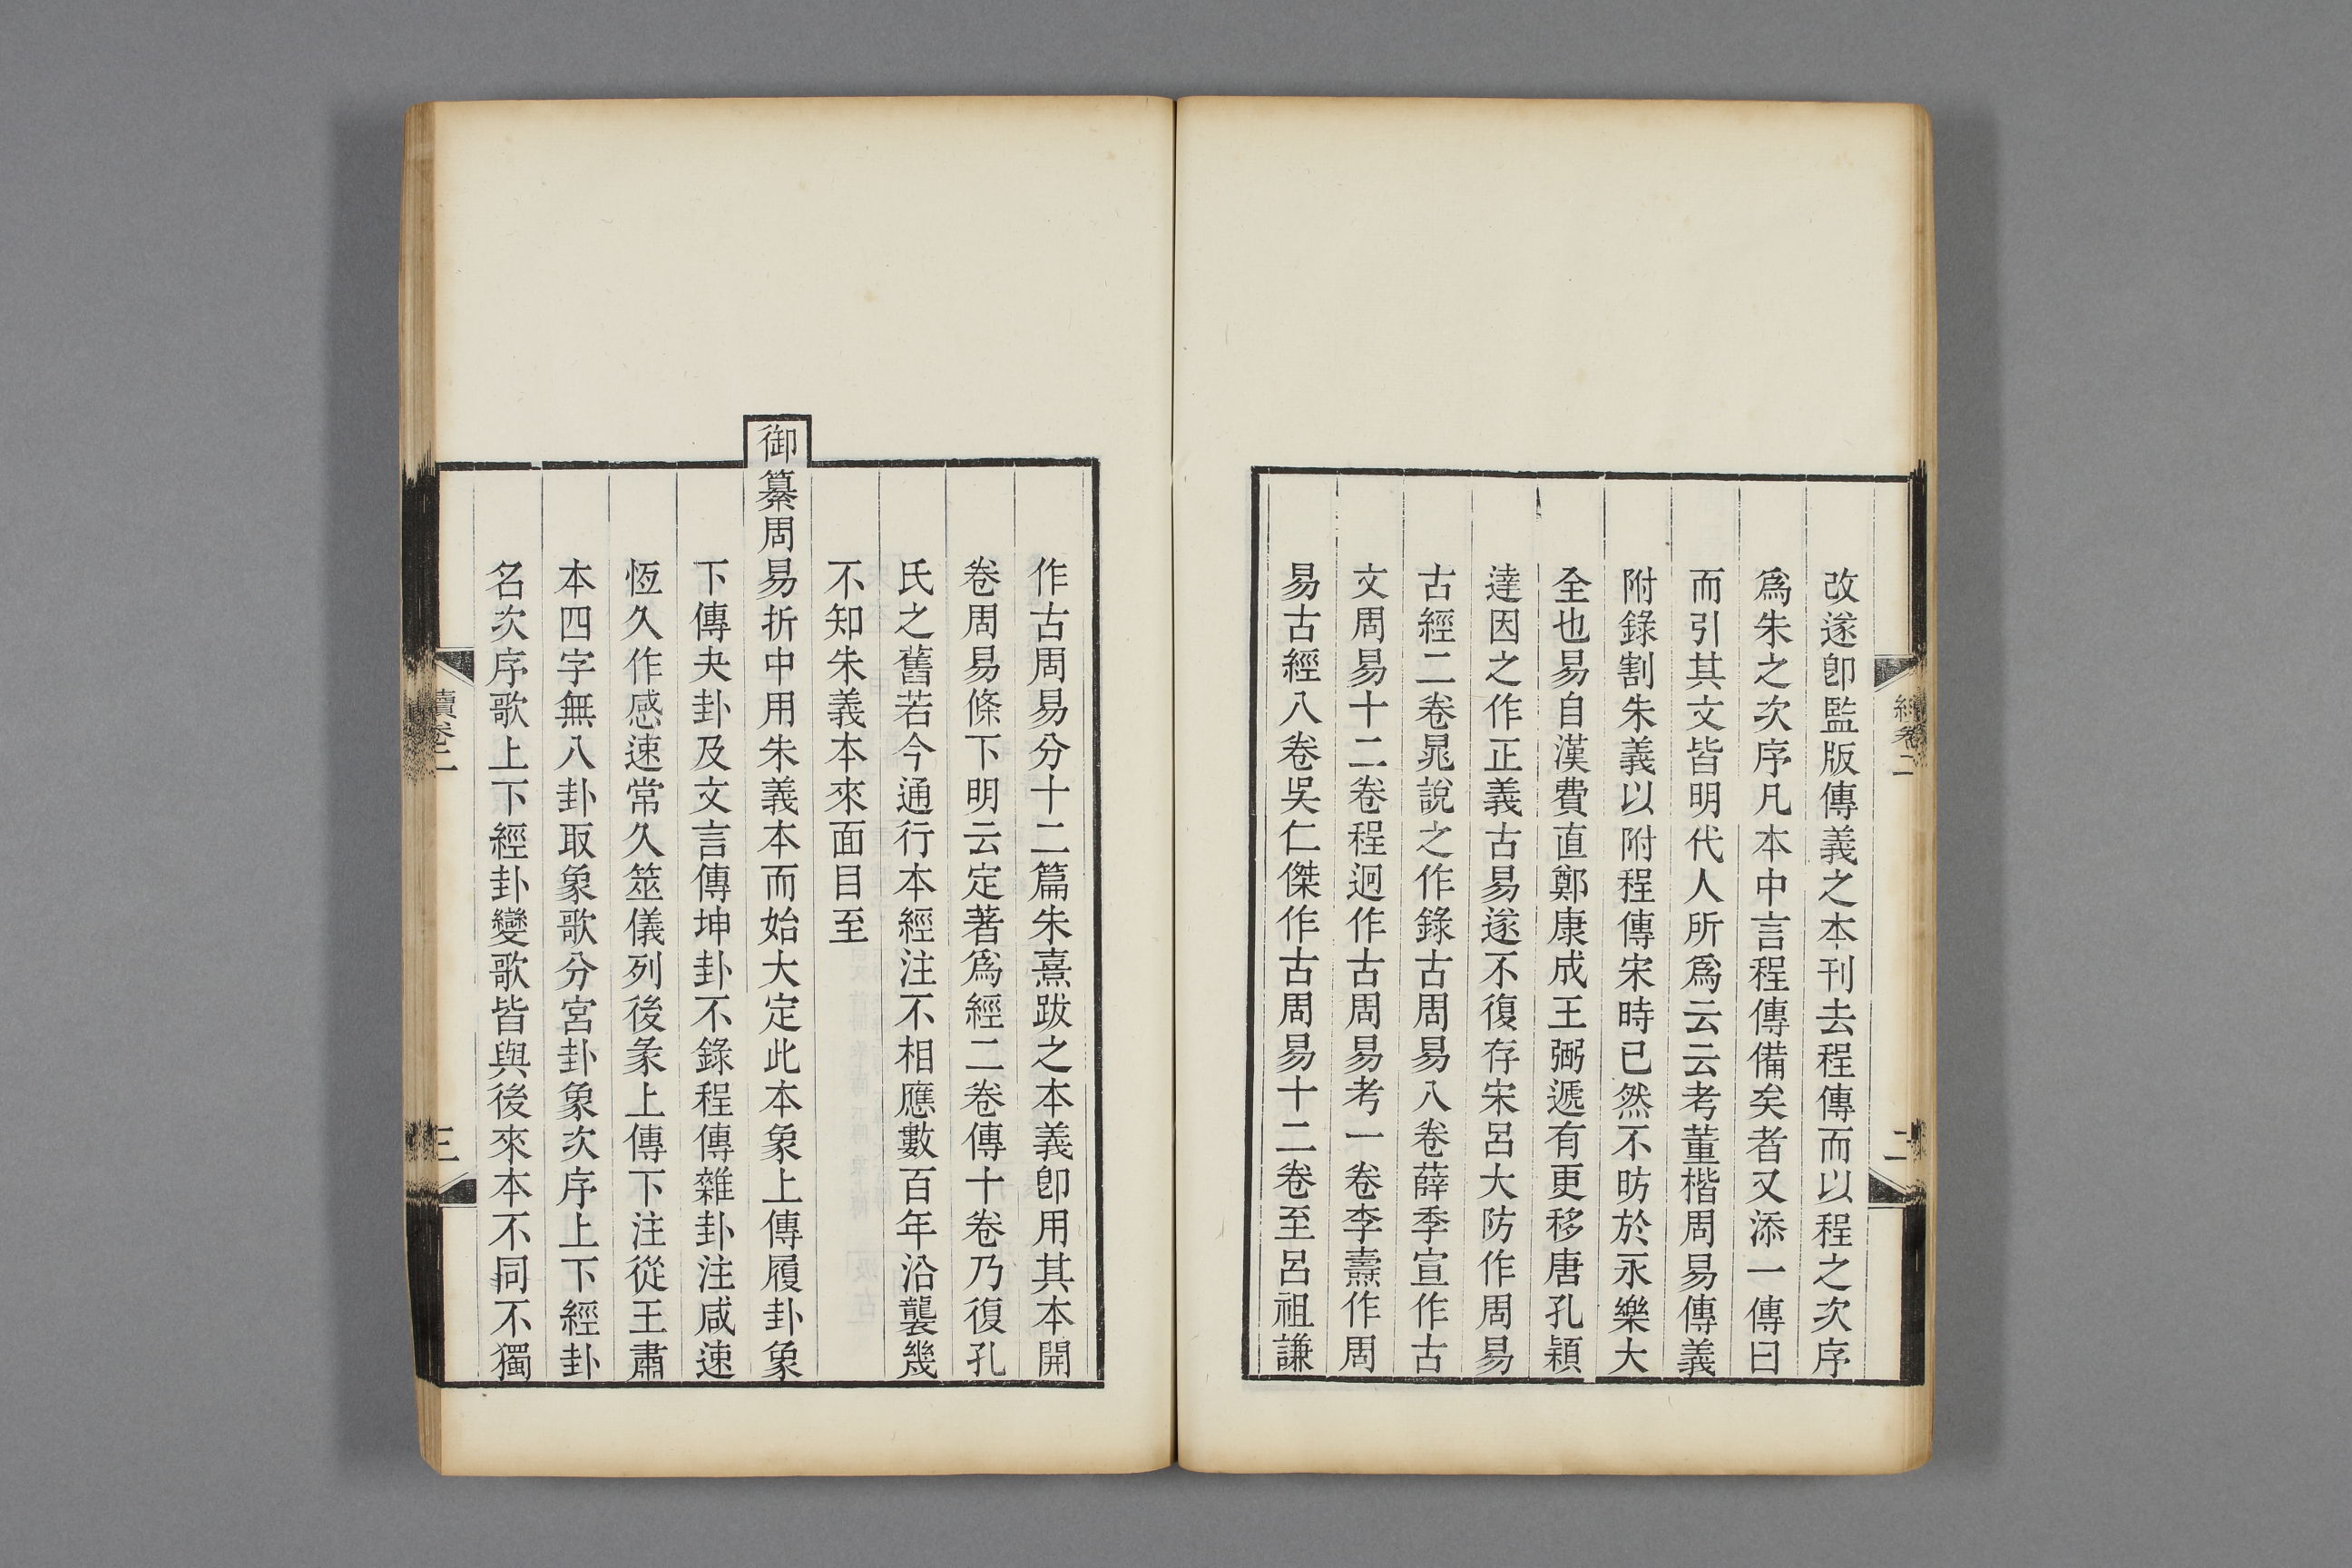 改遂卽監版傳義之本刊去程傳而以程之次序
爲朱之次序凡本中言程傳備矣者又添一傳曰
而引其文皆明代人所爲云云考董楷周易傳義
附錄割朱義以附程傳宋時已然不昉於永樂大
全也易自漢費直鄭康成王弼遞有更移唐孔穎
達因之作正義古易遂不復存宋呂大防作周易
古經二卷晁說之作錄古周易八卷薛季宣作古
文周易十二卷程迥作古周易考一卷李燾作周
易古經八卷吳仁傑作古周易十二卷至呂祖謙
作古周易分十二篇朱熹跋之本義卽用其本開
卷周易條下明云定著爲經二卷傳十卷乃復孔
氏之舊若今通行本經注不相應數百年沿襲幾
不知朱義本來面目至
御纂周易折中用朱義本而始大定此本象上傳履卦象
下傳夬卦及文言傳坤卦不錄程傳雜卦注咸速
恆久作感速常久筮儀列後彖上傳下注從王肅
本四字無八卦取象歌分宮卦象次序上下經卦
名次序歌上下經卦變歌皆與後來本不同不獨
續卷二
三
卷二
二